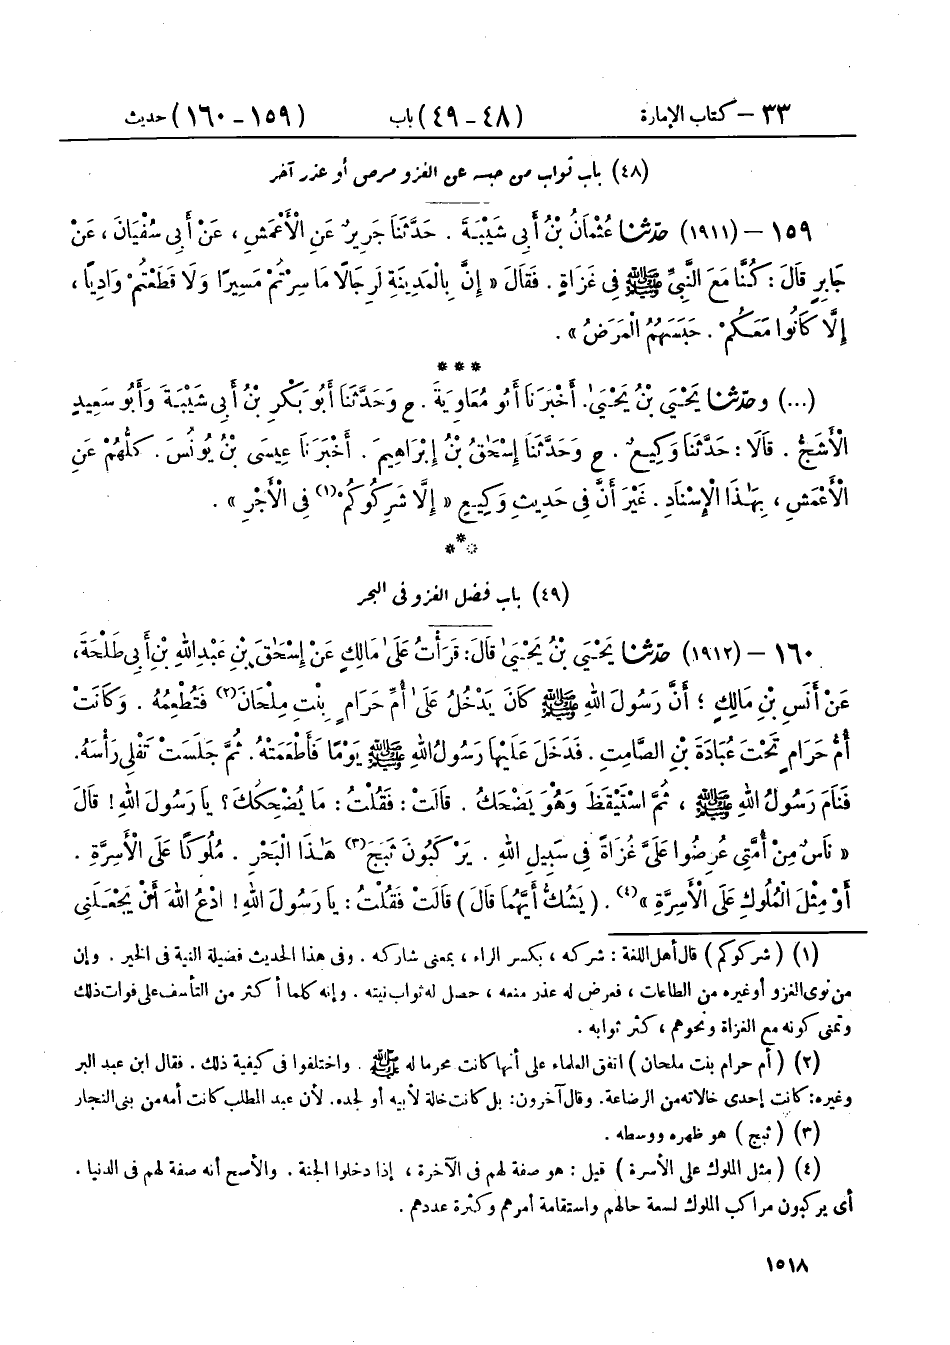 ٣٣ – كتاب الإمارة (٤٨ – ٤٩) باب (١٥٩ – ١٦٠) حديث
(٤٨) باب ثواب من حبسه عن الغزو مرض أو عذر آخر
١٥٩ – (١٩١١) حَدَّثَنَا عُثْمَانُ بْنُ أَبِي شَيْبَةَ . حَدَّثَنَا جَرِيرٌ عَنِ الْأَعْمَشِ ، عَنْ أَبِي سُفْيَانَ ، عَنْ
جَابِرٍ قَالَ : كُنَّا مَعَ النَّبِيِّ ﷺ فِي غَزَاةٍ . فَقَالَ « إِنَّ بِالْمَدِينَةِ لَرِجَالًا مَا سِرْتُمْ مَسِيرًا وَلَا قَطَعْتُمْ وَادِيًا ،
إِلَّا كَانُوا مَعَكُمْ . حَبَسَهُمُ الْمَرَضُ » .
***
(...) وحَدَّثَنَا يَحْيَىٰ بْنُ يَحْيَىٰ. أَخْبَرَنَا أَبُو مُعَاوِيَةَ . ح وَحَدَّثَنَا أَبُو بَكْرِ بْنُ أَبِي شَيْبَةَ وَأَبُو سَعِيدٍ
الْأَشَجُّ . قَالَا : حَدَّثَنَا وَكِيعٌ . ح وَحَدَّثَنَا إِسْحَٰقُ بْنُ إِبْرَاهِيمَ . أَخْبَرَنَا عِيسَى بْنُ يُونُسَ . كُلُّهُمْ عَنِ
الْأَعْمَشِ ، بِهَٰذَا الْإِسْنَادِ . غَيْرَ أَنَّ فِي حَدِيثِ وَكِيعٍ « إِلَّا شَرِكُوكُمْ(١) فِي الْأَجْرِ » .
***
(٤٩) باب فضل الغزو فى البحر
١٦٠ – (١٩١٢) حَدَّثَنَا يَحْيَىٰ بْنُ يَحْيَىٰ قَالَ: قَرَأْتُ عَلَىٰ مَالِكٍ عَنْ إِسْحَٰقَ بْنِ عَبْدِ اللهِ بْنِ أَبِي طَلْحَةَ،
عَنْ أَنَسِ بْنِ مَالِكٍ ؛ أَنَّ رَسُولَ اللهِ ﷺ كَانَ يَدْخُلُ عَلَىٰ أُمِّ حَرَامٍ بِنْتِ مِلْحَانَ(٢) فَتُطْعِمُهُ . وَكَانَتْ
أُمُّ حَرَامٍ تَحْتَ عُبَادَةَ بْنِ الصَّامِتِ . فَدَخَلَ عَلَيْهَا رَسُولُ اللهِ ﷺ يَوْمًا فَأَطْعَمَتْهُ. ثُمَّ جَلَسَتْ تَفْلِي رَأْسَهُ.
فَنَامَ رَسُولُ اللهِ ﷺ ، ثُمَّ اسْتَيْقَظَ وَهُوَ يَضْحَكُ . قَالَتْ : فَقُلْتُ : مَا يُضْحِكُكَ ؟ يَا رَسُولَ اللهِ ! قَالَ
« نَاسٌ مِنْ أُمَّتِي عُرِضُوا عَلَيَّ غُزَاةً فِي سَبِيلِ اللهِ . يَرْكَبُونَ ثَبَجَ(٣) هَٰذَا الْبَحْرِ . مُلُوكًا عَلَى الْأَسِرَّةِ .
أَوْ مِثْلَ الْمُلُوكِ عَلَى الْأَسِرَّةِ »(٤). (يَشُكُّ أَيَّهُمَا قَالَ) قَالَتْ فَقُلْتُ : يَا رَسُولَ اللهِ ! ادْعُ اللهَ أَنْ يَجْعَلَنِي
(١) (شركوكم) قال أهل اللغة : شركه ، بكسر الراء ، بمعنى شاركه . وفى هذا الحديث فضيلة النية فى الخير . وإن
من نوى الغزو أو غيره من الطاعات ، فعرض له عذر منعه ، حصل له ثواب نيته . وإنه كلما أكثر من التأسف على فوات ذلك
وتمنى كونه مع الغزاة ونحوهم ، كثر ثوابه .
(٢) (أم حرام بنت ملحان) اتفق العلماء على أنها كانت محرما له ﷺ . واختلفوا فى كيفية ذلك . فقال ابن عبد البر
وغيره: كانت إحدى خالاته من الرضاعة. وقال آخرون: بل كانت خالة لأبيه أو لجده. لأن عبد المطلب كانت أمه من بنى النجار
(٣) (ثبج) هو ظهره ووسطه .
(٤) (مثل الملوك على الأسرة) قيل : هو صفة لهم فى الآخرة ، إذا دخلوا الجنة . والأصح أنه صفة لهم فى الدنيا .
أى يركبون مراكب الملوك لسعة حالهم واستقامة أمرهم وكثرة عددهم .
١٥١٨